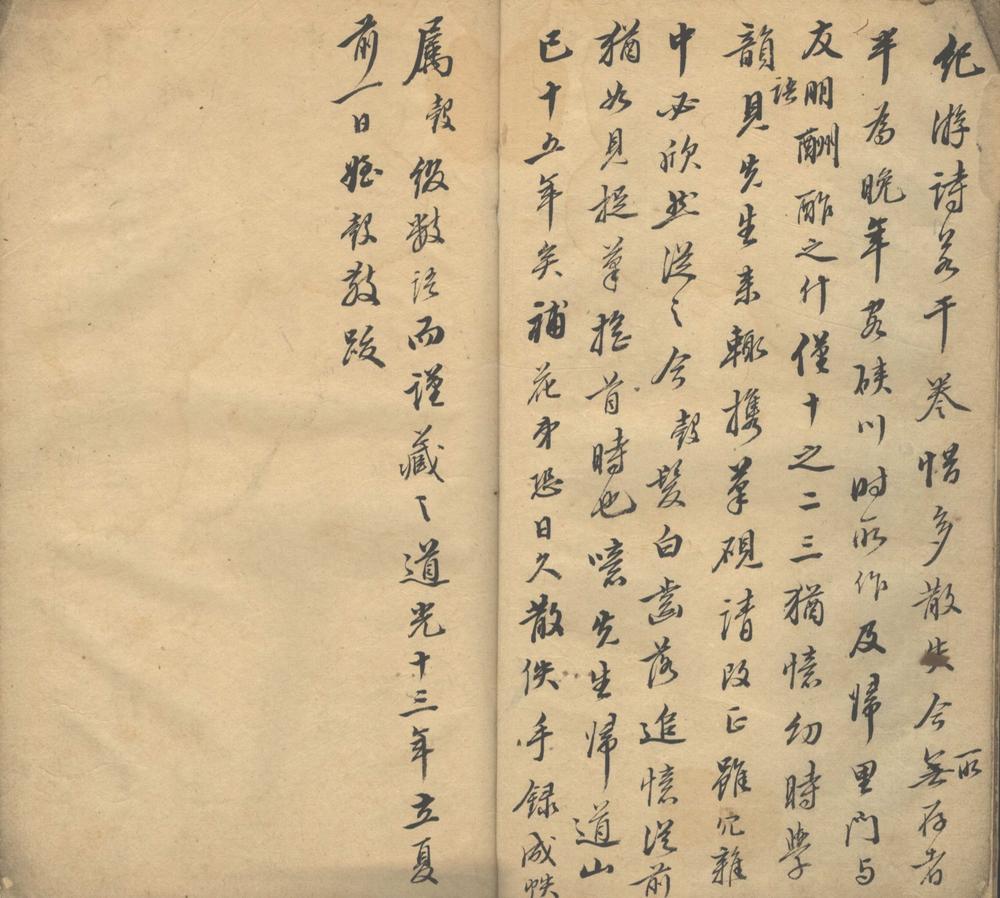 紀游詩若干卷惜多散失今所無存者
半為晚年客硤川时所作及歸里门与
友朋酬酢之什僅十之二三猶憶幼時學
韻語見先生来輒携筆硯請改正雖冗雜
中必欣然從〻今毅髮白齒落追憶從前
猶如見捉筆搖首時也噫先生歸道山
已十五年矣補花弟恐日久散佚手録成帙
属毅綴数语而謹藏〻道光十三年立夏
前一日姪毅敬跋